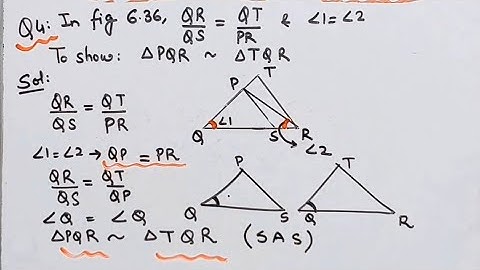 Q4: In fig 6.36, QR/QS = QT/PR & ∠1=∠2
To show: △PQR ~ △TQR
Sol:
QR/QS = QT/PR
∠1=∠2 → QP = PR
QR/QS = QT/QP
∠Q = ∠Q
△PQR ~ △TQR (SAS)
T
P
Q ∠1 S R
∠2
P
Q S
T
Q R